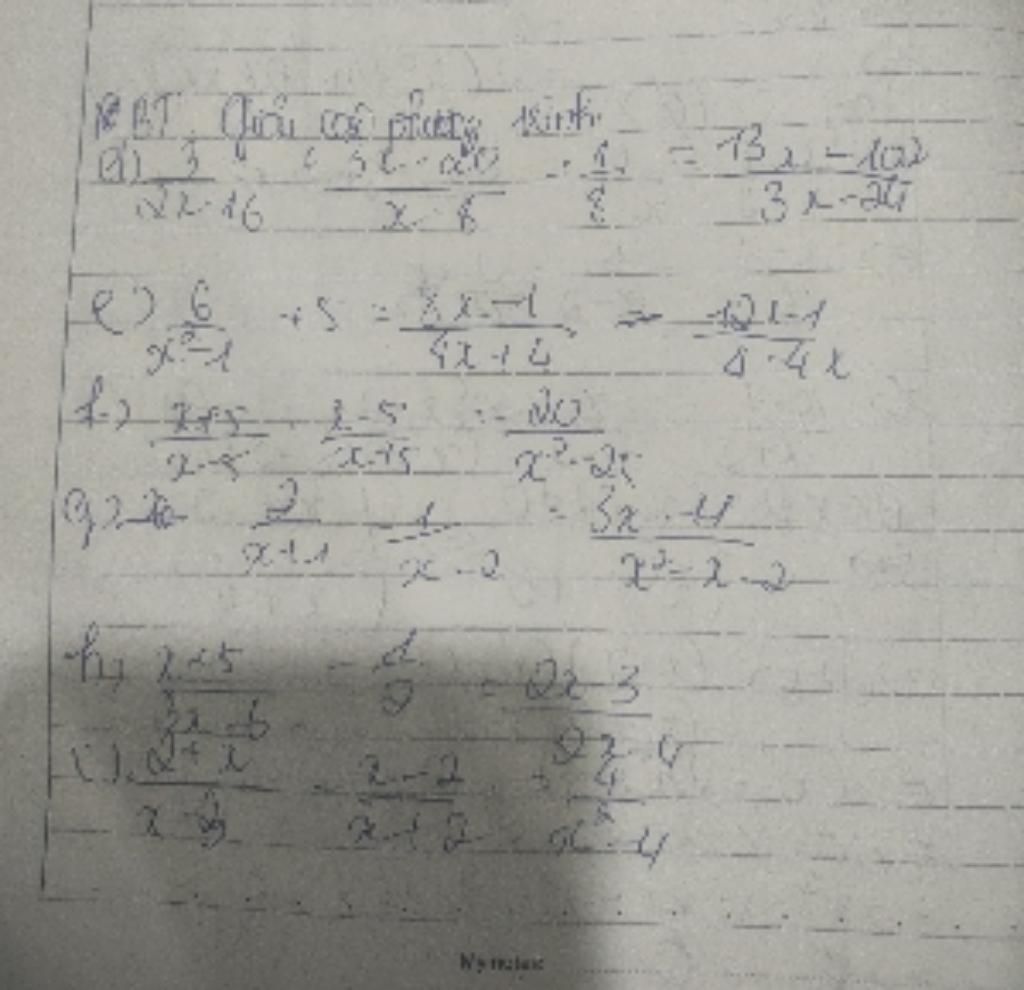 BT Giải các phương trình
d) 3/(2x-16) + (3x-20)/(x-8) + 1/8 = (13x-102)/(3x-24)
e) 6/(x²-1) + 5 = (8x-1)/(4x+4) - (12x-1)/(4-4x)
f) (x+5)/(x-5) - (x-5)/(x+5) = 20/(x²-25)
g) 2/(x+1) - 1/(x-2) = (3x-11)/(x²-x-2)
h) (x+5)/(3x-6) - 1/2 = (2x-3)/(2x-4)
i) (2+x)/(x-2) - (x-2)/(x+2) = 4/(x²-4)
My notes